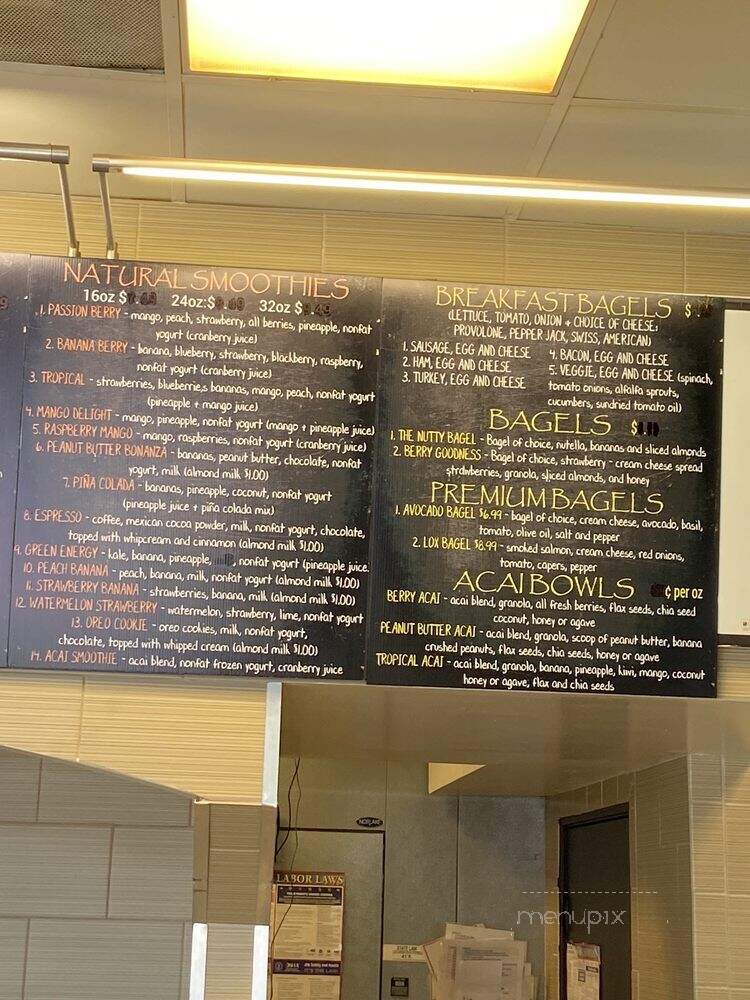 NATURAL SMOOTHIES
16oz $ 24oz:$ 32oz $
1. PASSION BERRY - mango, peach, strawberry, all berries, pineapple, nonfat
yogurt (cranberry juice)
2. BANANA BERRY - banana, blueberry, strawberry, blackberry, raspberry,
nonfat yogurt (cranberry juice)
3. TROPICAL - strawberries, blueberrie,s bananas, mango, peach, nonfat yogurt
(pineapple + mango juice)
4. MANGO DELIGHT - mango, pineapple, nonfat yogurt (mango + pineapple juice)
5. RASPBERRY MANGO - mango, raspberries, nonfat yogurt (cranberry juice)
6. PEANUT BUTTER BONANZA - bananas, peanut butter, chocolate, nonfat
yogurt, milk (almond milk $1.00)
7. PIÑA COLADA - bananas, pineapple, coconut, nonfat yogurt
(pineapple juice + piña colada mix)
8. ESPRESSO - coffee, mexican cocoa powder, milk, nonfat yogurt, chocolate,
topped with whipcream and cinnamon (almond milk $1.00)
9. GREEN ENERGY - kale, banana, pineapple, nonfat yogurt (pineapple juice
10. PEACH BANANA - peach, banana, milk, nonfat yogurt (almond milk $1.00)
11. STRAWBERRY BANANA - strawberries, banana, milk (almond milk $1.00)
12. WATERMELON STRAWBERRY - watermelon, strawberry, lime, nonfat yogurt
13. OREO COOKIE - oreo cookies, milk, nonfat yogurt,
chocolate, topped with whipped cream (almond milk $1.00)
14. ACAI SMOOTHIE - acai blend, nonfat frozen yogurt, cranberry juice
BREAKFAST BAGELS $
(LETTUCE, TOMATO, ONION + CHOICE OF CHEESE;
PROVOLONE, PEPPER JACK, SWISS, AMERICAN)
1. SAUSAGE, EGG AND CHEESE
2. HAM, EGG AND CHEESE
3. TURKEY, EGG AND CHEESE
4. BACON, EGG AND CHEESE
5. VEGGIE, EGG AND CHEESE (spinach,
tomato onions, alfalfa sprouts,
cucumbers, sundried tomato oil)
BAGELS $
1. THE NUTTY BAGEL - Bagel of choice, nutella, bananas and sliced almonds
2. BERRY GOODNESS - Bagel of choice, strawberry - cream cheese spread
strawberries, granola, sliced almonds, and honey
PREMIUM BAGELS
1. AVOCADO BAGEL $6.99 - bagel of choice, cream cheese, avocado, basil,
tomato, olive oil, salt and pepper
2. LOX BAGEL $8.99 - smoked salmon, cream cheese, red onions,
tomato, capers, pepper
ACAI BOWLS ¢ per oz
BERRY ACAI - acai blend, granola, all fresh berries, flax seeds, chia seed
coconut, honey or agave
PEANUT BUTTER ACAI - acai blend, granola, scoop of peanut butter, banana
crushed peanuts, flax seeds, chia seeds, honey or agave
TROPICAL ACAI - acai blend, granola, banana, pineapple, kiwi, mango, coconut
honey or agave, flax and chia seeds
NORLAKE
LABOR LAWS
STATE LAW
menupix